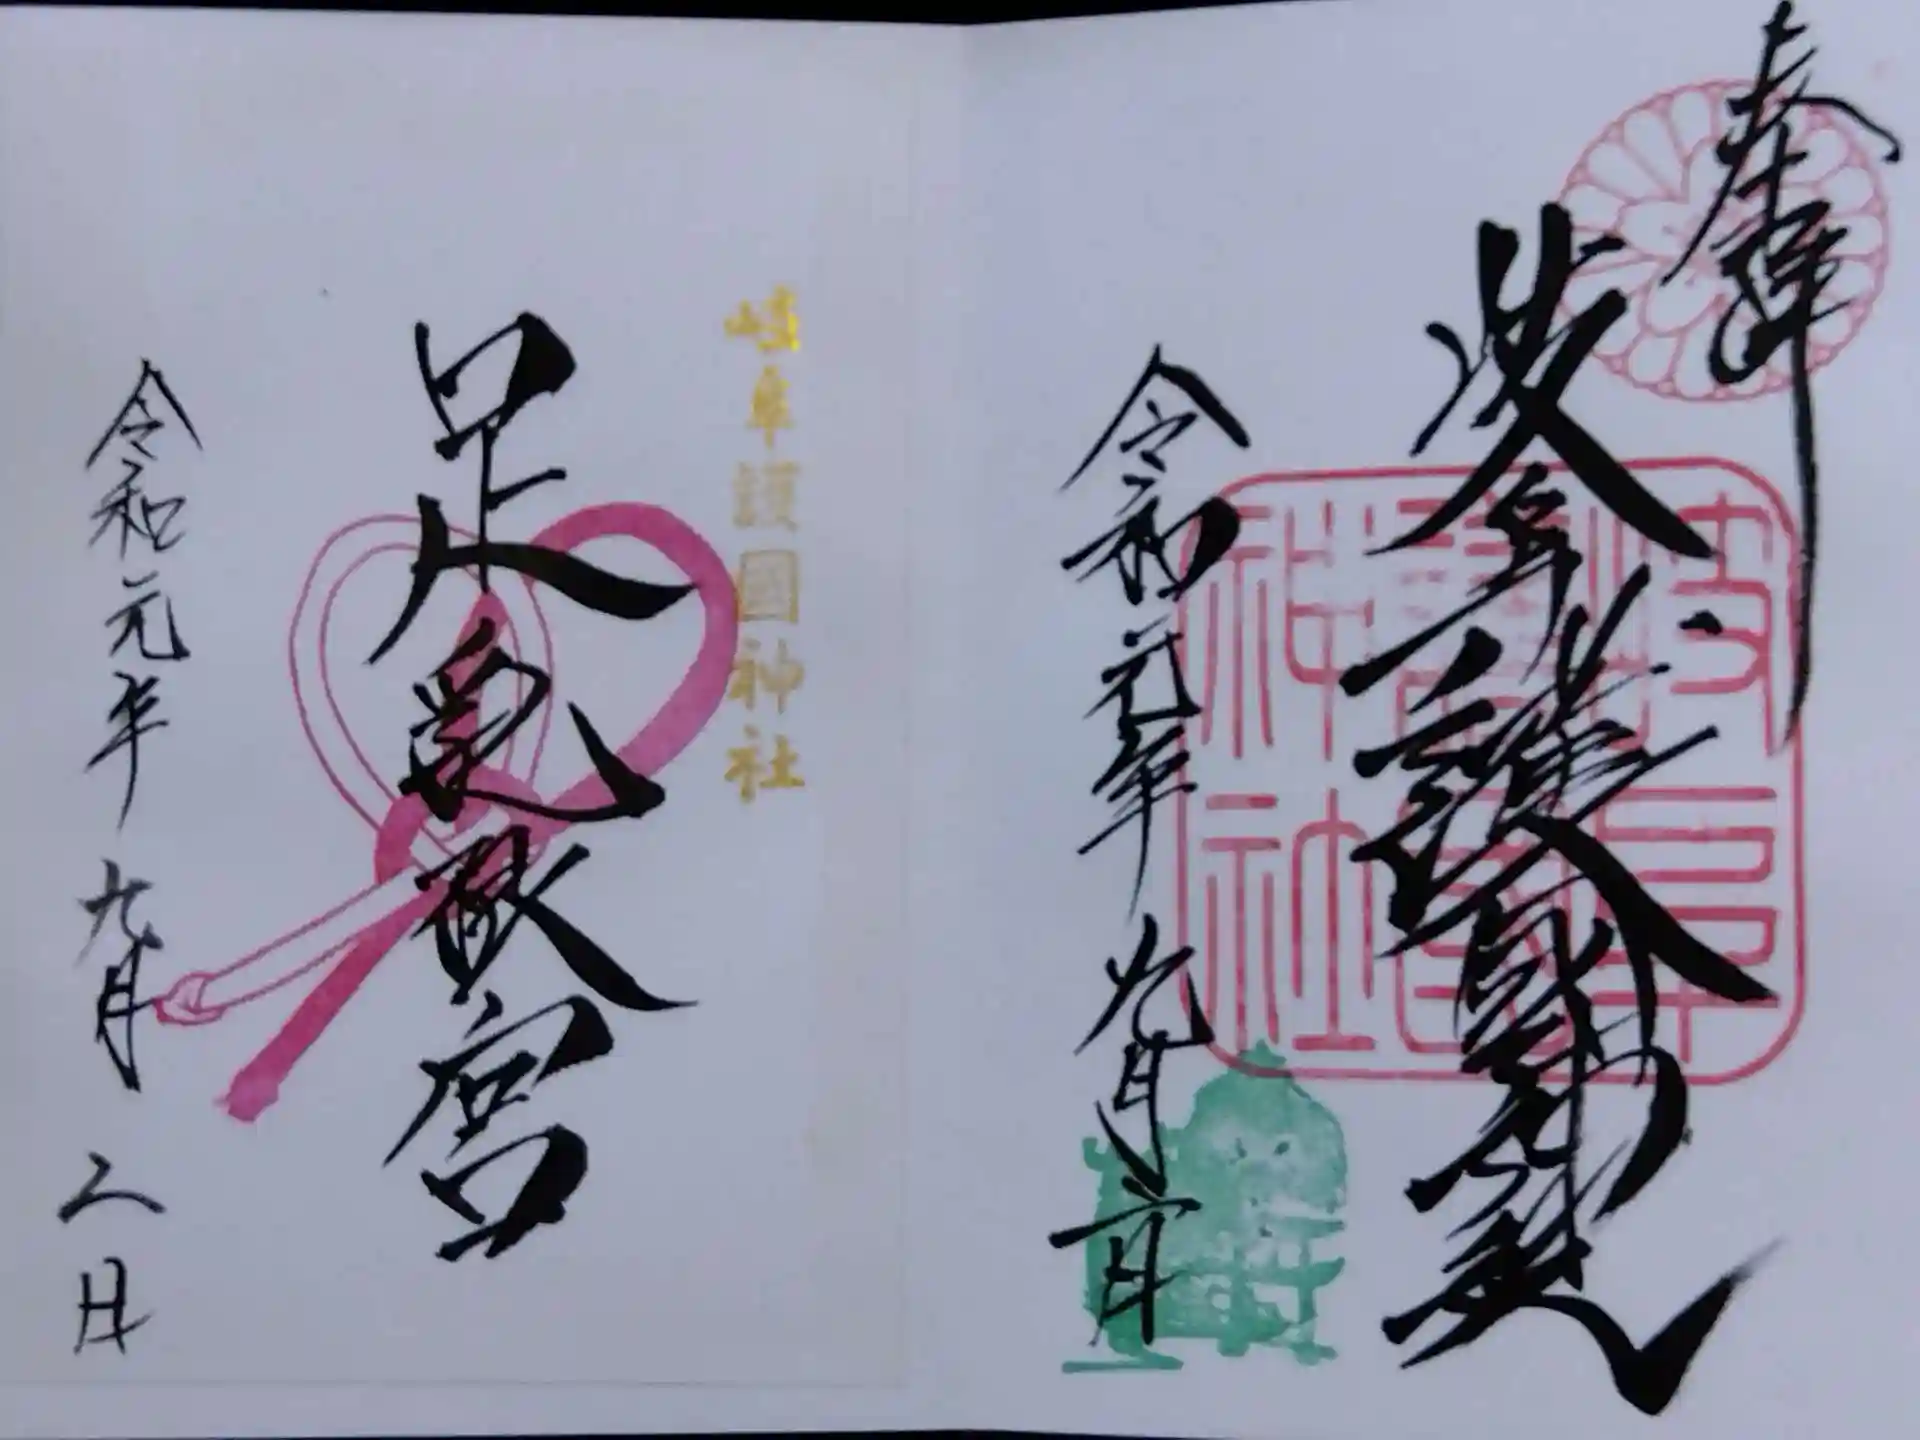 奉拝
岐阜護國神社
岐阜護国神社
令和元年九月二日
岐阜護國神社
令和元年九月二日